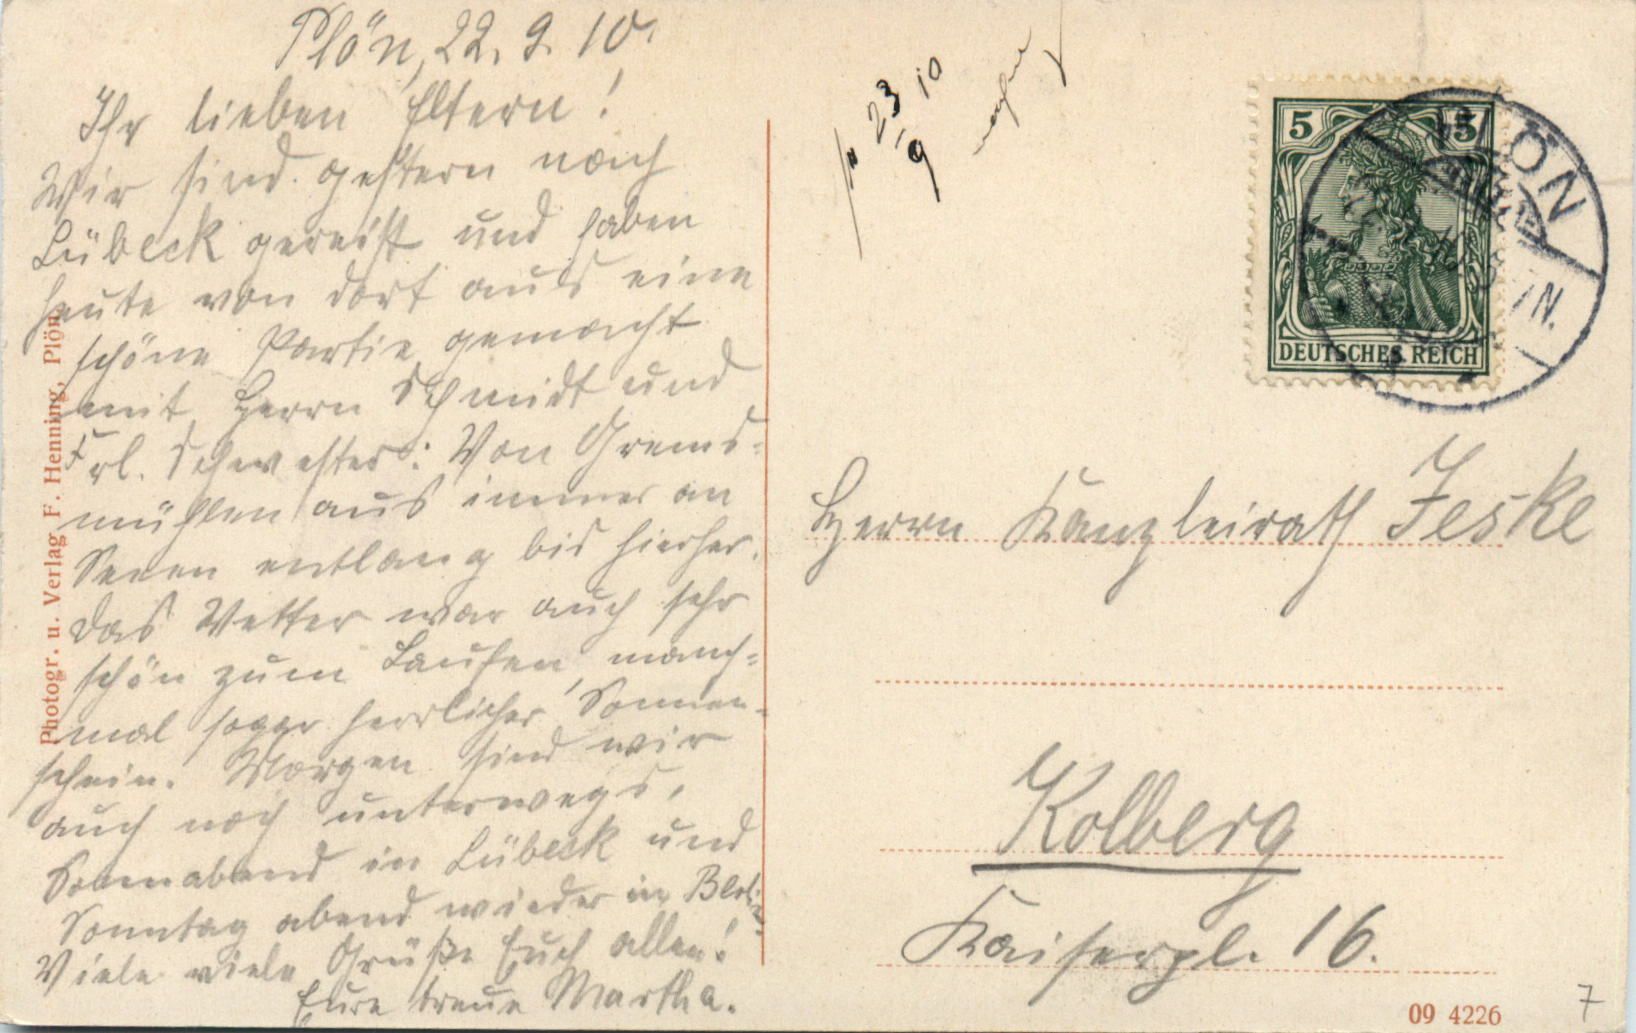 Plön, 22. 9. 10.
Ihr lieben Eltern!
Wir sind gestern nach
Lübeck gereist und haben
heute von dort aus eine
schöne Partie gemacht
mit Herrn Schmidt und
Frl. Schwester: Von Grems-
mühlen aus immer an
Seen entlang bis hierher.
Das Wetter war auch sehr
schön zum Laufen, manch-
mal sogar herrlicher Sonnen-
schein. Morgen sind wir
auch noch unterwegs,
Sonnabend in Lübeck und
Sonntag abend wieder in
Viele viele Grüße Euch allen!
Eure treue Martha.
Photogr. u. Verlag F. Henning, Plön.
23/9 10
5 5
DEUTSCHES REICH
PLÖN
Herrn Kanzleirath Jeske
Kolberg
Kaiserpl. 16.
09 4226
7